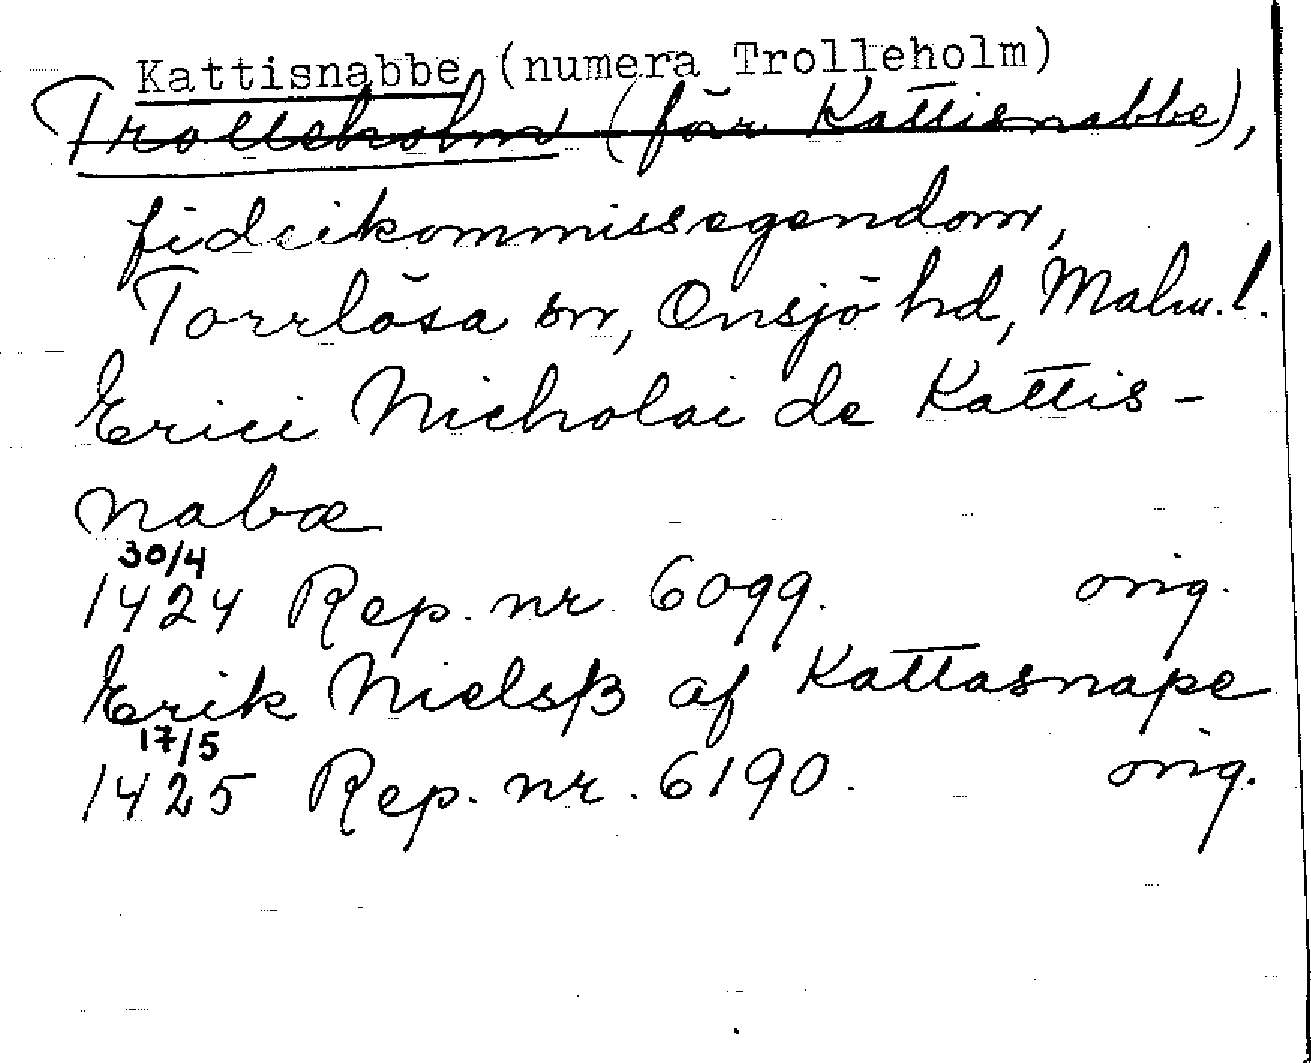 Kattisnabbe (numera Trolleholm)
Trolleholm (förr Kattisnabbe),
fideikommissegendom,
Torrlösa sn, Onsjö hd, Malm. l.
Erici Nicholai de Kattis-
nabæ
30/4
1424 Rep. nr 6099. orig.
Erik Nielsß af Kattasnape
17/5
1425 Rep. nr. 6190. orig.